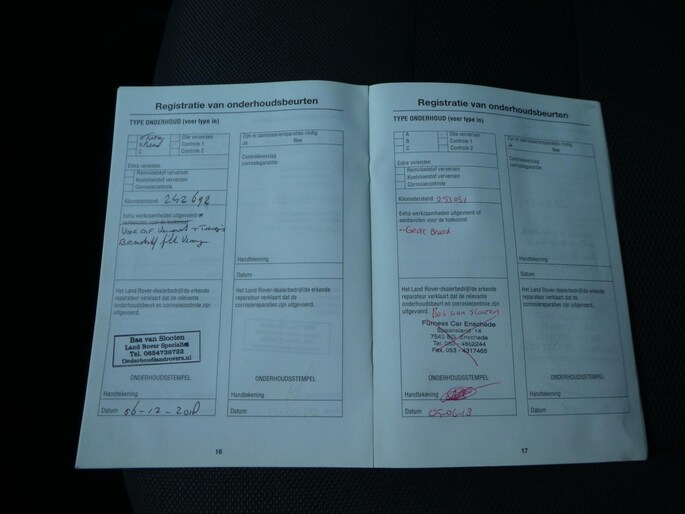 Registratie van onderhoudsbeurten
TYPE ONDERHOUD (voer type in)
Olie verversen
Controle 1
C Controle 2
Extra vereisten
Remvloeistof verversen
Koelvloeistof verversen
Corrosiecontrole
Kilometerstand 242692
Extra werkzaamheden uitgevoerd
Zijn er carrosseriereparaties nodig
Ja Nee
Controleverslag
corrosiegarantie
Handtekening
Datum
Het Land Rover-dealerbedrijf/de erkende
reparateur verklaart dat de relevante
onderhoudsbeurt en corrosiecontrole zijn
uitgevoerd.
Bas van Slooten
Land Rover Specialist
Tel. 0654738722
Onderhoudlandrovers.nl
ONDERHOUDSSTEMPEL
Handtekening
Datum 06-12-2018
Het Land Rover-dealerbedrijf/de erkende
reparateur verklaart dat de
corrosiereparaties zijn uitgevoerd.
ONDERHOUDSSTEMPEL
Handtekening
Datum
16
Registratie van onderhoudsbeurten
TYPE ONDERHOUD (voer type in)
A Olie verversen
B Controle 1
C Controle 2
Extra vereisten
Remvloeistof verversen
Koelvloeistof verversen
Corrosiecontrole
Kilometerstand 253051
Extra werkzaamheden uitgevoerd of
aanbevolen voor de toekomst
Zijn er carrosseriereparaties nodig
Ja Nee
Controleverslag
corrosiegarantie
Handtekening
Datum
Het Land Rover-dealerbedrijf/de erkende
reparateur verklaart dat de relevante
onderhoudsbeurt en corrosiecontrole zijn
uitgevoerd. Bas van Slooten
Furness Car Enschede
14
7543 Enschede
Tel. 053 -
Fax. 053 - 4317465
ONDERHOUDSSTEMPEL
Handtekening
Datum
Het Land Rover-dealerbedrijf/de erkende
reparateur verklaart dat de
corrosiereparaties zijn uitgevoerd.
ONDERHOUDSSTEMPEL
Handtekening
Datum
17